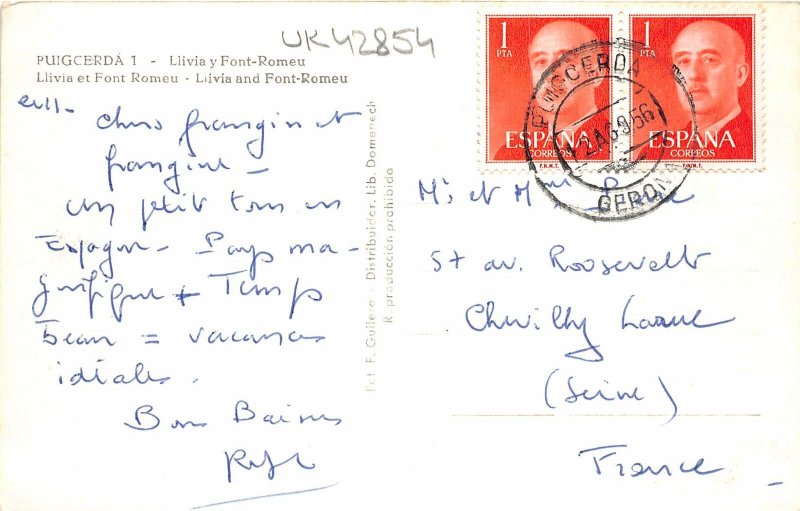 UK42854
PUIGCERDÁ 1 - Llivia y Font-Romeu
Llivia et Font Romeu - Llivia and Font-Romeu
chers frangin et
frangine -
un petit tour en
Espagne - Pays ma-
gnifique + Temps
beau = vacances
idéales.
Bons Baisers
Fot. F. Guilera - Distribuidor. Lib. Domenech
Reproducción prohibida
1
PTA
ESPAÑA
CORREOS
F.N.M.T.
1
PTA
ESPAÑA
CORREOS
F.N.M.T.
PUIGCERDA
2 AGO 56
GERONA
Mr et Mme
57 av. Roosevelt
Chevilly Larue
(Seine)
France